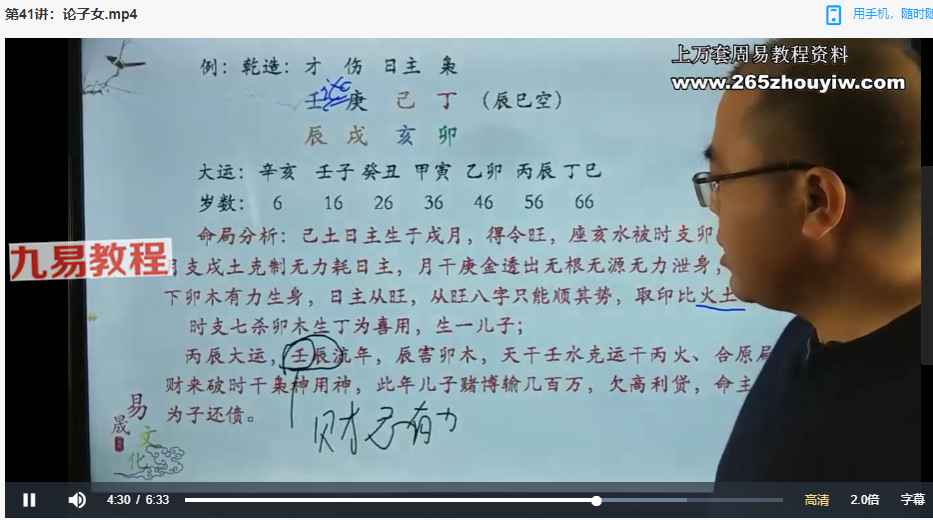 第41讲：论子女.mp4
用手机，随时随
上万套周易教程资料
www.265zhouyiw.com
例：乾造：才 伤 日主 枭
壬 庚 己 丁（辰巳空）
辰 戌 亥 卯
大运：辛亥 壬子 癸丑 甲寅 乙卯 丙辰 丁巳
岁数：6 16 26 36 46 56 66
命局分析：己土日主生于戌月，得令旺，座亥水被时支卯
九易教程
月支戌土克制无力耗日主，月干庚金透出无根无源无力泄身，
下卯木有力生身，日主从旺，从旺八字只能顺其势，取印比火土
时支七杀卯木生丁为喜用，生一儿子；
丙辰大运，壬辰流年，辰害卯木，天干壬水克运干丙火、合原局
财来破时干枭神用神，此年儿子赌博输几百万，欠高利贷，命主
为子还债。
财 有力
易
晟
文
化
4:30 / 6:33
高清
2.0倍
字幕